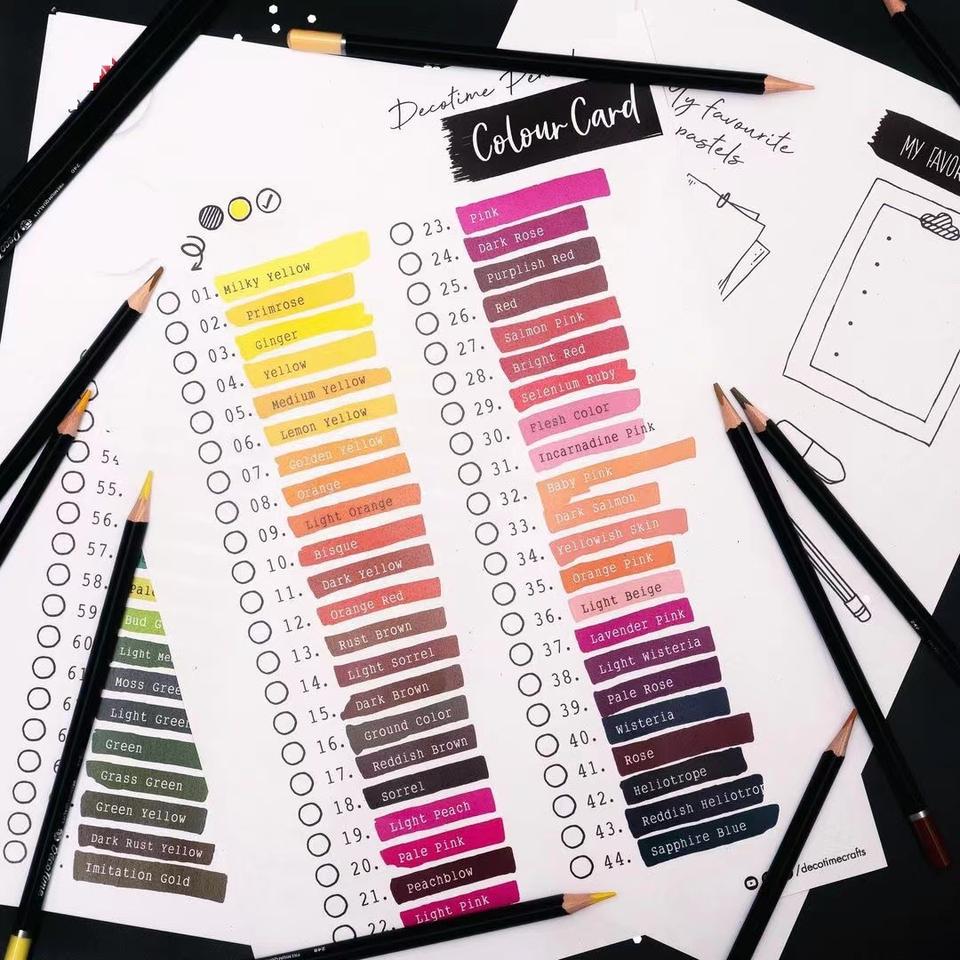 Decotime
Colour Card
01. Milky Yellow
02. Primrose
03. Ginger
04. Yellow
05. Medium Yellow
06. Lemon Yellow
07. Golden Yellow
08. Orange
09. Light Orange
10. Bisque
11. Dark Yellow
12. Orange Red
13. Rust Brown
14. Light Sorrel
15. Dark Brown
16. Ground Color
17. Reddish Brown
18. Sorrel
19. Light Peach
20. Pale Pink
21. Peachblow
22. Light Pink
23. Pink
24. Dark Rose
25. Purplish Red
26. Red
27. Salmon Pink
28. Bright Red
29. Selenium Ruby
30. Flesh Color
31. Incarnadine Pink
32. Baby Pink
33. Dark Salmon
34. Yellowish Skin
35. Orange Pink
36. Light Beige
37. Lavender Pink
38. Light Wisteria
39. Pale Rose
40. Wisteria
41. Rose
42. Heliotrope
43. Reddish Heliotrop
44. Sapphire Blue
/decotimecrafts
My favourite
pastels
MY FAVOR
54
55.
56.
57.
58. Pale
59 Bud G
60 Light Me
61 Moss Gree
Light Green
Green
Grass Green
Green Yellow
Dark Rust Yellow
Imitation Gold